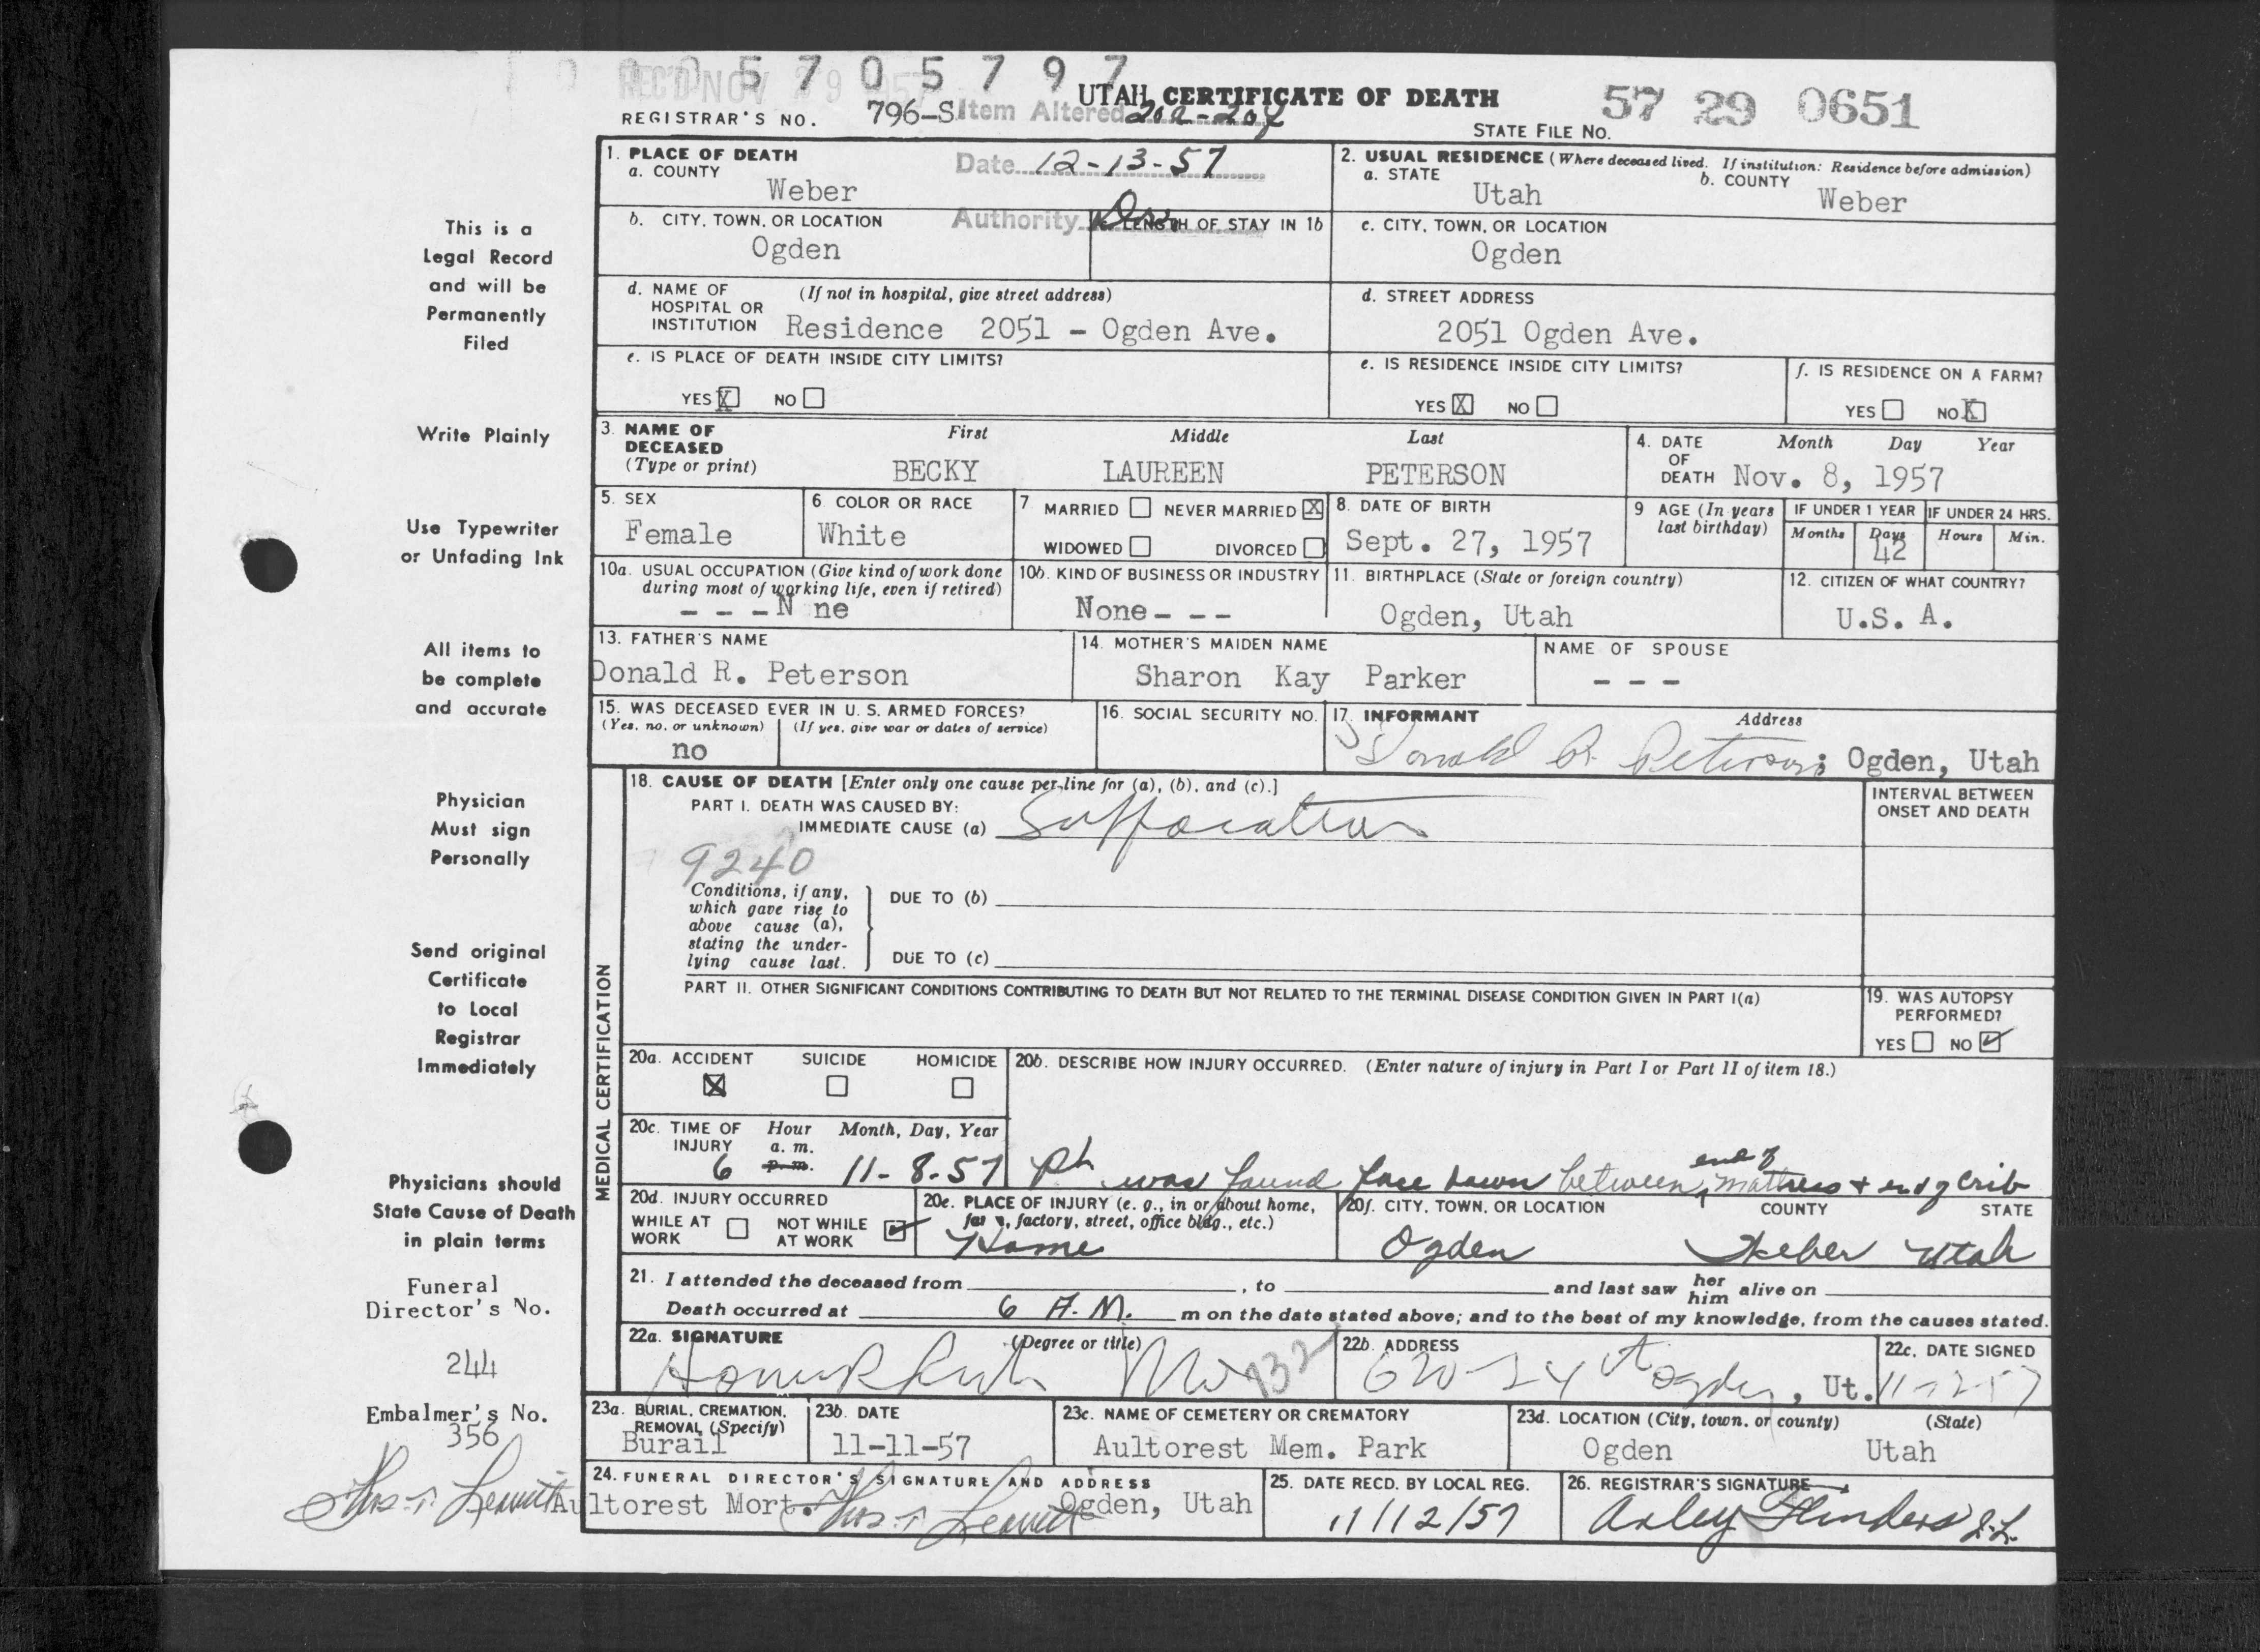 0 5 7 0 5 7 9 7
REC'D NOV 29 1957
UTAH CERTIFICATE OF DEATH
57 29 0651
REGISTRAR'S NO. 796-S
Item Altered 20a-20f
STATE FILE NO.
1. PLACE OF DEATH
Date 12-13-57
a. COUNTY
Weber
2. USUAL RESIDENCE (Where deceased lived. If institution: Residence before admission)
a. STATE
Utah
b. COUNTY
Weber
b. CITY, TOWN, OR LOCATION
Ogden
Authority Dr.
LENGTH OF STAY IN 1b
c. CITY, TOWN, OR LOCATION
Ogden
d. NAME OF HOSPITAL OR INSTITUTION (If not in hospital, give street address)
Residence 2051 - Ogden Ave.
d. STREET ADDRESS
2051 Ogden Ave.
e. IS PLACE OF DEATH INSIDE CITY LIMITS?
YES X NO
e. IS RESIDENCE INSIDE CITY LIMITS?
YES X NO
f. IS RESIDENCE ON A FARM?
YES NO X
3. NAME OF DECEASED (Type or print)
First Middle Last
BECKY LAUREEN PETERSON
4. DATE OF DEATH
Month Day Year
Nov. 8, 1957
5. SEX
Female
6 COLOR OR RACE
White
7 MARRIED NEVER MARRIED X
WIDOWED DIVORCED
8. DATE OF BIRTH
Sept. 27, 1957
9 AGE (In years last birthday)
IF UNDER 1 YEAR
Months Days
42
IF UNDER 24 HRS.
Hours Min.
10a. USUAL OCCUPATION (Give kind of work done during most of working life, even if retired)
- - - N ne
10b. KIND OF BUSINESS OR INDUSTRY
None- - -
11. BIRTHPLACE (State or foreign country)
Ogden, Utah
12. CITIZEN OF WHAT COUNTRY?
U.S. A.
13. FATHER'S NAME
Donald R. Peterson
14. MOTHER'S MAIDEN NAME
Sharon Kay Parker
NAME OF SPOUSE
- - -
15. WAS DECEASED EVER IN U. S. ARMED FORCES?
(Yes, no, or unknown) (If yes, give war or dates of service)
no
16. SOCIAL SECURITY NO.
17. INFORMANT Address
Donald R. Peterson; Ogden, Utah
18. CAUSE OF DEATH [Enter only one cause per line for (a), (b), and (c).]
PART I. DEATH WAS CAUSED BY:
IMMEDIATE CAUSE (a) Suffocation
INTERVAL BETWEEN ONSET AND DEATH
9240
Conditions, if any, which gave rise to above cause (a), stating the underlying cause last.
DUE TO (b)
DUE TO (c)
PART II. OTHER SIGNIFICANT CONDITIONS CONTRIBUTING TO DEATH BUT NOT RELATED TO THE TERMINAL DISEASE CONDITION GIVEN IN PART I(a)
19. WAS AUTOPSY PERFORMED?
YES NO ✓
MEDICAL CERTIFICATION
20a. ACCIDENT SUICIDE HOMICIDE
X
20b. DESCRIBE HOW INJURY OCCURRED. (Enter nature of injury in Part I or Part II of item 18.)
Pt. was found face down between end of mattress + end of crib
20c. TIME OF INJURY
Hour a. m. p. m. Month, Day, Year
6 11-8-57
20d. INJURY OCCURRED
WHILE AT WORK NOT WHILE AT WORK ✓
20e. PLACE OF INJURY (e. g., in or about home, farm, factory, street, office bldg., etc.)
Home
20f. CITY, TOWN, OR LOCATION COUNTY STATE
Ogden Weber Utah
21. I attended the deceased from , to and last saw her him alive on
Death occurred at 6 A.M. m on the date stated above; and to the best of my knowledge, from the causes stated.
22a. SIGNATURE (Degree or title)
132
22b. ADDRESS
Ogden, Ut.
22c. DATE SIGNED
23a. BURIAL, CREMATION, REMOVAL (Specify)
Burail
23b. DATE
11-11-57
23c. NAME OF CEMETERY OR CREMATORY
Aultorest Mem. Park
23d. LOCATION (City, town, or county) (State)
Ogden Utah
24. FUNERAL DIRECTOR'S SIGNATURE AND ADDRESS
Aultorest Mort. Ogden, Utah
25. DATE RECD. BY LOCAL REG.
11/12/57
26. REGISTRAR'S SIGNATURE
Arley Flinders J.L.
This is a
Legal Record
and will be
Permanently
Filed
Write Plainly
Use Typewriter
or Unfading Ink
All items to
be complete
and accurate
Physician
Must sign
Personally
Send original
Certificate
to Local
Registrar
Immediately
Physicians should
State Cause of Death
in plain terms
Funeral
Director's No.
244
Embalmer's No.
356